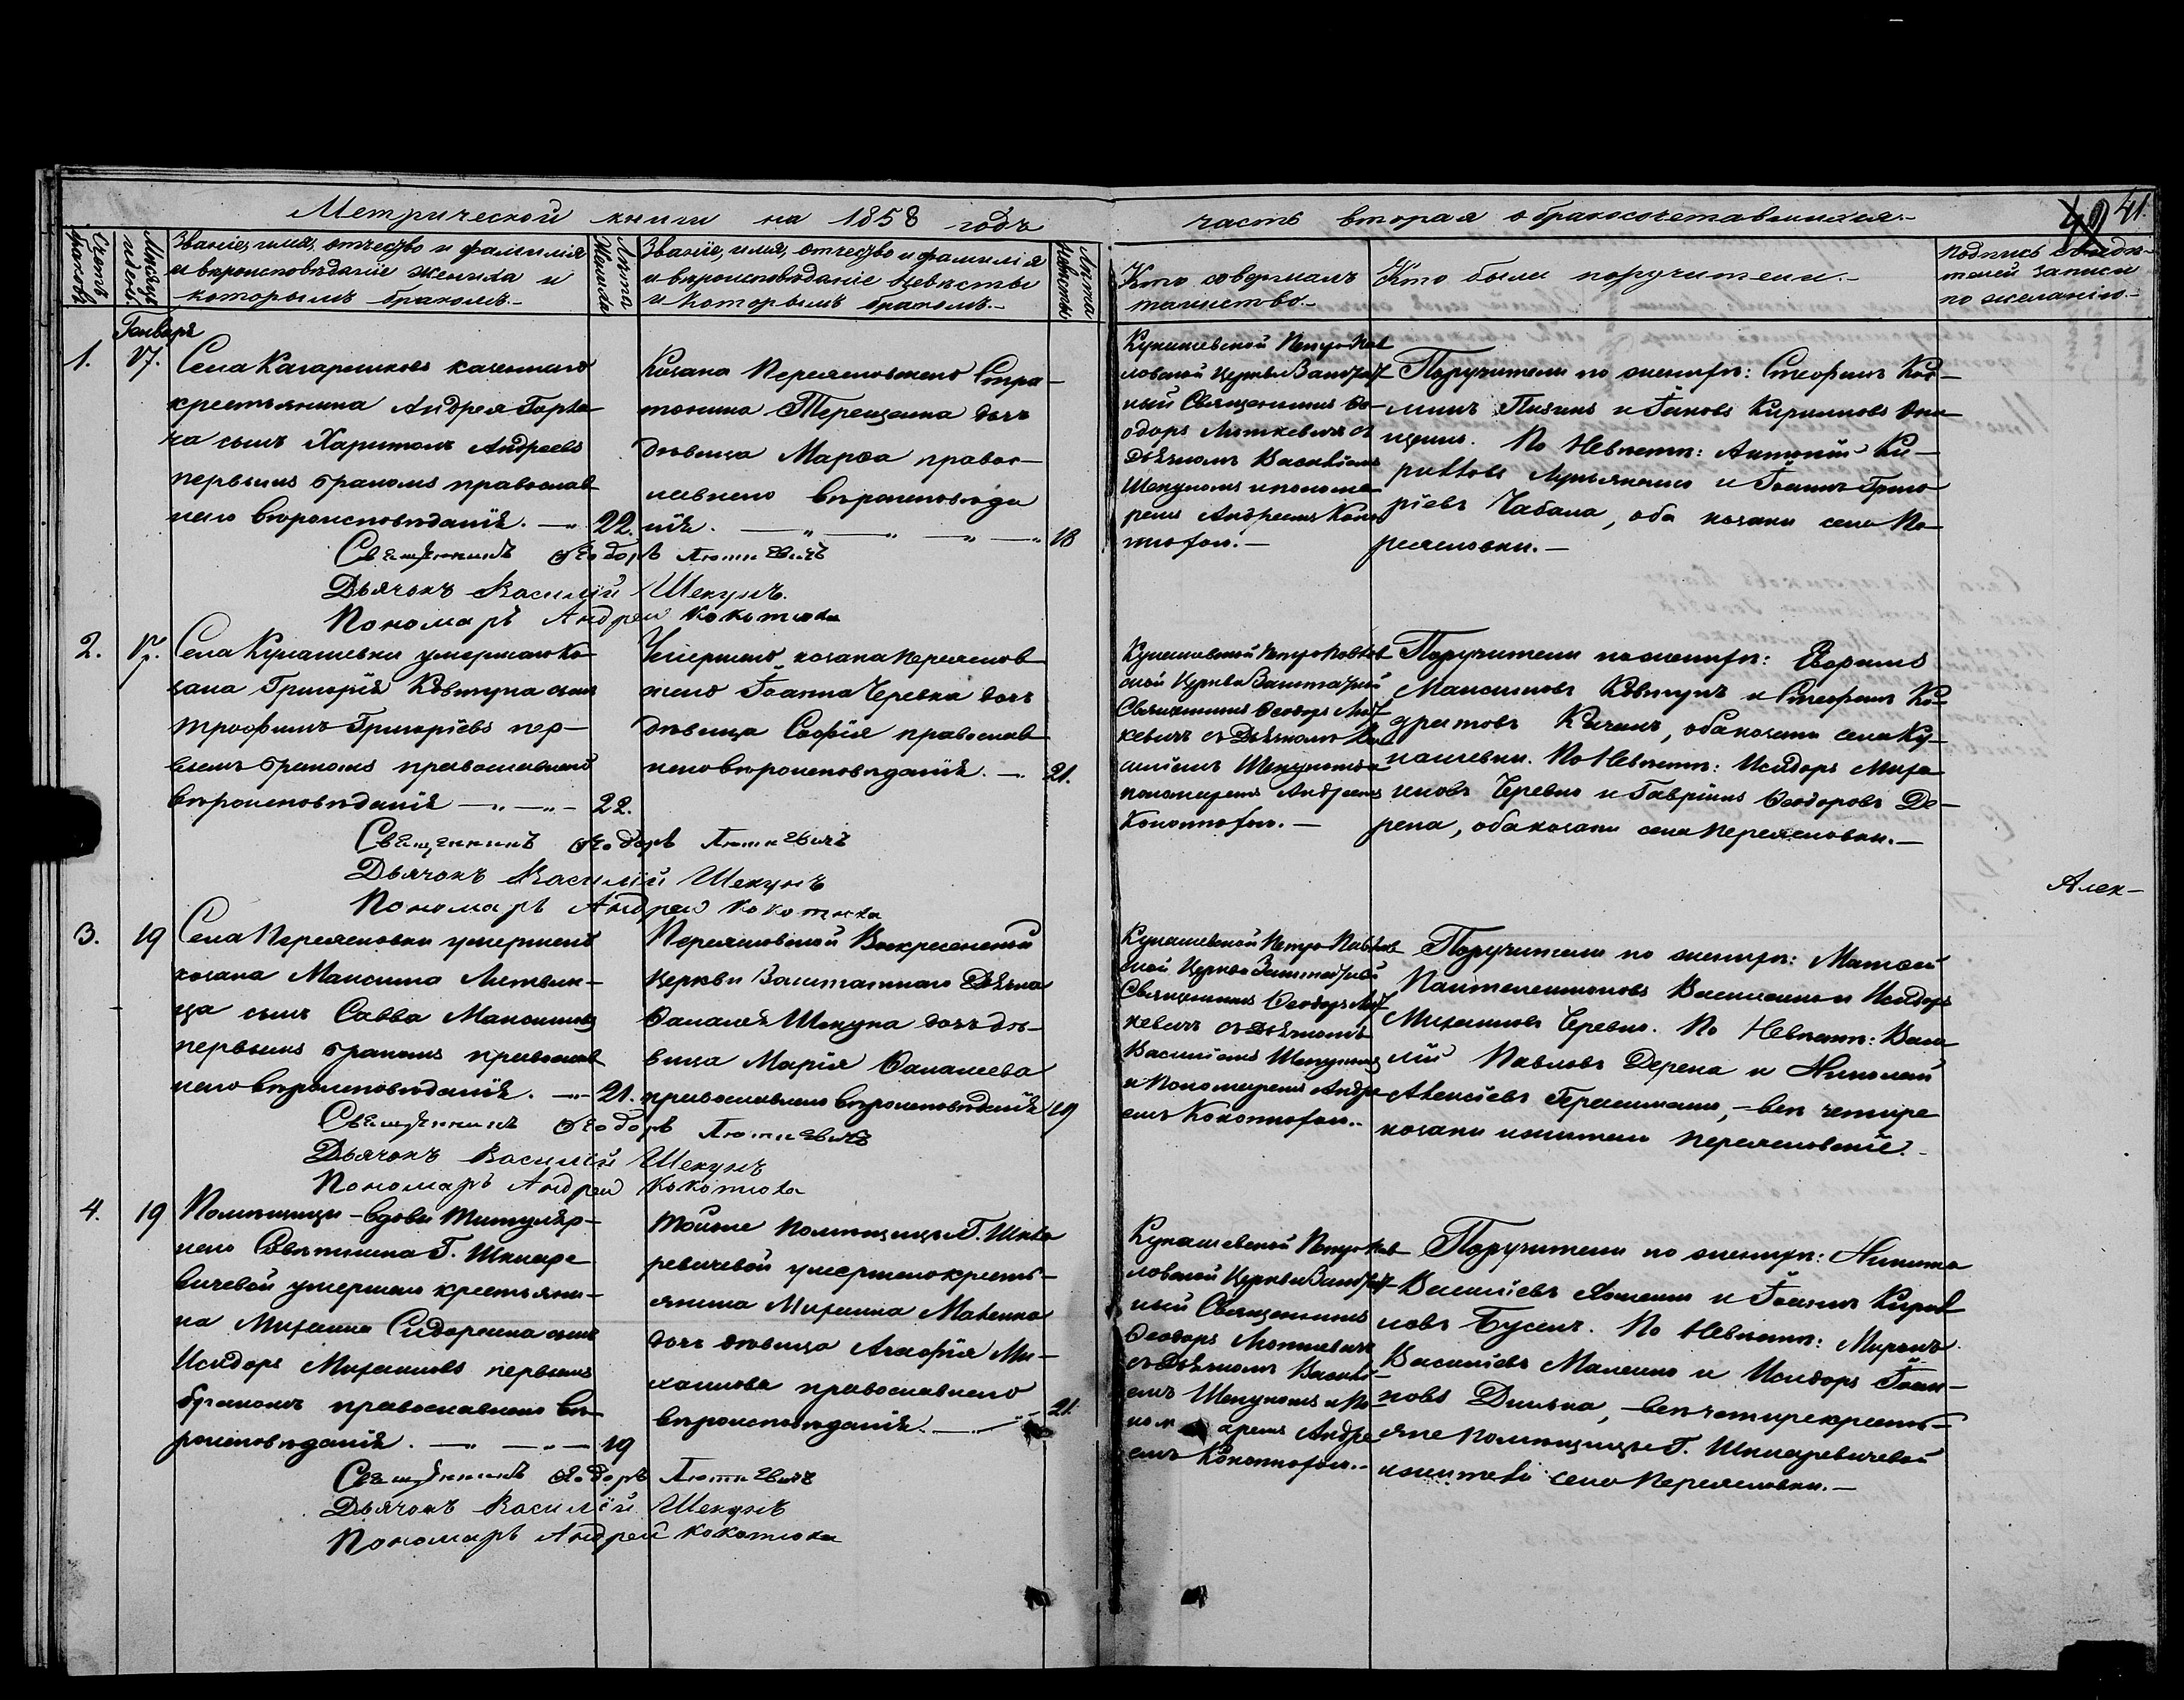 Метрической книги на 1858 годъ
часть вторая о бракосочетавшихся.
49 41.
Счетъ браковъ.
Мѣсяцъ и день.
Званіе, имя, отчество и фамилія
и вѣроисповѣданіе жениха и
которымъ бракомъ.
Лѣта жениха
Званіе, имя, отчество и фамилія
и вѣроисповѣданіе невѣсты
и которымъ бракомъ.
Лѣта невѣсты
Кто совершалъ
таинство.
Кто были поручители.
Подпись свидѣ-
телей записи
по желанію.
Генваря
1.
17.
Села казеннаго
крестьянина Андрея
сынъ Харитонъ Андреевъ
первымъ бракомъ православ
наго вѣроисповѣданія.
22.
Козака Переясловскаго
Терещенка дочь
дѣвица Марѳа правос-
лавнаго вѣроисповѣда
нія.
18
Кунашевской Петро Пав
ловской Церкви Заштат
ный Священникъ Ѳе-
одоръ Люткевичъ съ
Дьячкомъ Василіемъ
Шекуномъ и понома
ремъ Андреемъ Коко
тюхою.
Поручители по женихѣ: Стефанъ
и Іаковъ Кирилловъ
По Невѣстѣ: Антоній Ки-
рилловъ и Іоаннъ Григо
ріевъ Чабала, оба козаки села Пе-
реясловки.
Священникъ Ѳеодоръ Люткевичъ
Дьячокъ Василій Шекунъ.
Пономарь Андрей Кокотюха
2.
17.
Села Кунашевки умершаго ко
зака Григорія Ковтуна сынъ
Трофимъ Григоріевъ пер-
вымъ бракомъ православнаго
вѣроисповѣданія
22.
Умершаго козака Переяслов
скаго Іоанна Черевка дочь
дѣвица Софія православ
наго вѣроисповѣданія.
21.
Кунашевской Петро Павлов
ской Церкви Заштатный
Священникъ Ѳеодоръ Лют
кевичъ съ Дьячкомъ Ва
силіемъ Шекуномъ и
пономаремъ Андреемъ
Кокотюхою.
Поручители по женихѣ:
Максимовъ Ковтунъ и Стефанъ Ко-
дратовъ оба козаки села Ку-
нашевки. По Невѣстѣ: Исидоръ Миха
иловъ Черевко и Гавріилъ Ѳеодоровъ Де-
река, оба козаки села Переясловки.
Священникъ Ѳеодоръ Люткевичъ
Дьячокъ Василій Шекунъ
Пономарь Андрей Кокотюха
Алек-
3.
19
Села Переясловки умершаго
козака Максима Литвин-
ца сынъ Савва Максимовъ
первымъ бракомъ православ
наго вѣроисповѣданія.
21.
Переясловской Воскресенской
Церкви Заштатнаго Дьячка
Шекуна дочь дѣ-
вица Марія
православнаго вѣроисповѣданія
19
Кунашевской Петро Павлов
ской Церкви Заштатный
Священникъ Ѳеодоръ Лют
кевичъ съ Дьячкомъ
Василіемъ Шекуномъ
и Пономаремъ Андре
емъ Кокотюхою.
Поручители по женихѣ: Матѳей
Пантелеимоновъ и Исидоръ
Михаиловъ Черевко. По Невѣстѣ: Васи
лій Павловъ Дерека и Николай
Алексіевъ всѣ четыре
козаки и жители Переясловскіе.
Священникъ Ѳеодоръ Люткевичъ
Дьячокъ Василій Шекунъ
Пономарь Андрей Кокотюха
4.
19
Помѣщицы – вдовы Титуляр-
наго Совѣтника Г. Шкляре
вичевой умершаго крестьяни-
на Михаила Сидоренка сынъ
Исидоръ Михаиловъ первымъ
бракомъ православнаго вѣ-
роисповѣданія.
19
Тойже помѣщицы Г. Шкля
ревичевой умершаго кресть-
янина Михаила Маленка
дочь дѣвица Агафія Ми-
хаилова православнаго
вѣроисповѣданія.
21.
Кунашевской Петро Пав
ловской Церкви Заштат
ный Священникъ
Ѳеодоръ Люткевичъ
съ Дьячкомъ Василі-
емъ Шекуномъ и По-
номаремъ Андре
емъ Кокотюхою.
Поручители по женихѣ: Никита
Василіевъ и Іоаннъ Кирил
ловъ Бусенъ. По Невѣстѣ: Миронъ
Василіевъ Маленко и Исидоръ Іоан-
новъ всѣ четыре кресть-
яне помѣщицы Г. Шкляревичевой
и жители села Переясловки.
Священникъ Ѳеодоръ Люткевичъ
Дьячокъ Василій Шекунъ
Пономарь Андрей Кокотюха